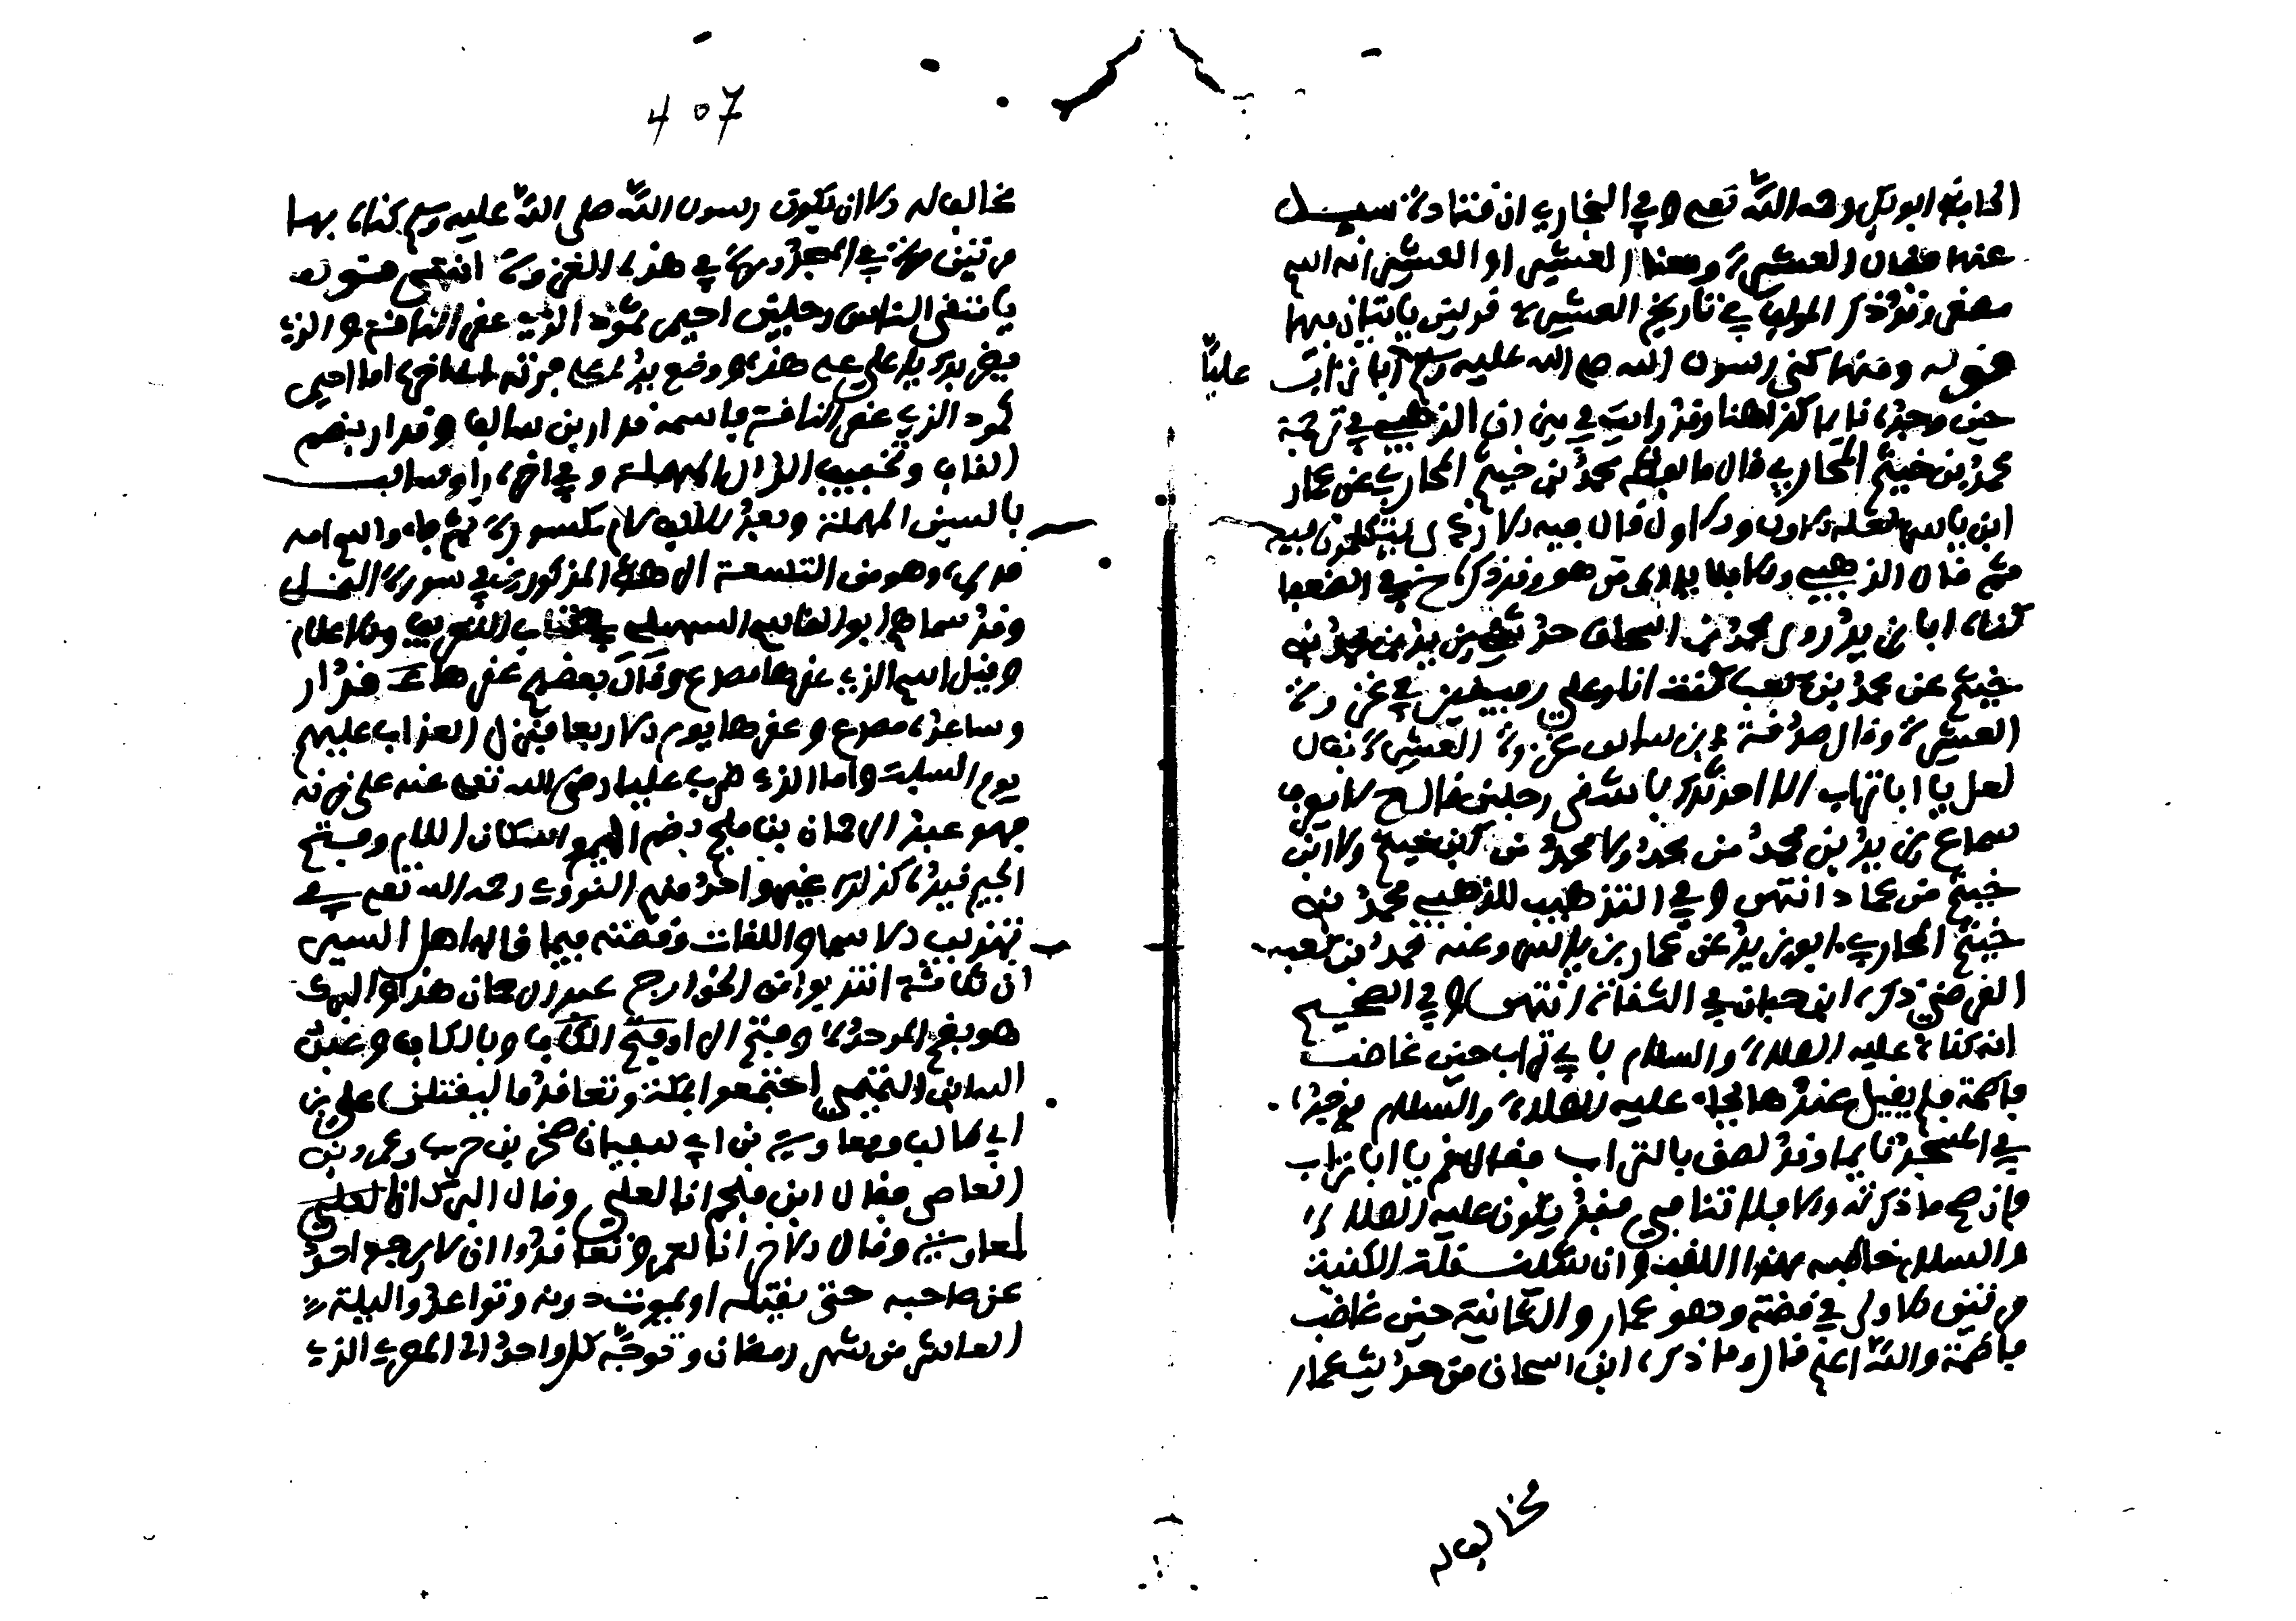 الحافظ ابو بكر رحمه الله تعلى وفي البخاري ان قتادة سيل
عنها فقال العشيرة ومعنا العشير او العسير انه اسم
مصغر وقد ذكر المولف في تاريخ العشيرة قريش ياتيان بها
قوله وفيها كنى رسول الله صلى الله عليه وسلم ابا تراب عليًّا
حين وجده نايما كذا هنا وقد رايت في ميزان الذهبي في ترجمة
محمد بن خيثم المحاربي قال ما لفظه محمد بن خيثم المحاربي عن عمار
ابن ياسر
ثم قال الذهبي ولا يدرى من هو وقد ذكره خ في الضعفا
كناه ابا يزيد روى محمد بن اسحاق حدثني يزيد بن محمد بن
خيثم عن محمد بن كعب كنت انا وعلي رفيقين في غزوة
العشيرة وقال صدقة بن سابق غزوة العسيرة فقال
لعلي يا ابا تراب الا احدثك باشقى رجلين قال خ لا يعرف
سماع يزيد بن محمد من محمد ولا محمد من ابن خيثم ولا ابن
خيثم من عمار انتهى وفي التذهيب للذهبي محمد بن
خيثم المحاربي ابو يزيد عن عمار بن ياسر وعنه محمد بن كعب
القرضي ذكره ابن حبان في الثقات انتهى وفي الصحيح
انه كناه عليه الصلاة والسلام بابي تراب حين غاضب
فاطمة فلم يقيل عندها فجاء عليه الصلاة والسلام فوجده
في المسجد نايما وقد لصق بالتراب فقال قم يا ابا تراب
فان صح ما ذكرته والا فلا تنافي فقد يكون عليه الصلاة
والسلام خاطبه بهذا اللفظ وان شئت قلت الكنية
مرتين الاولى في قصته وهو عمار والثانية حين غاضب
فاطمة والله اعلم قال وما ذكره ابن اسحاق من حديث عمار
مخالف له
407
مخالف له الا ان يكون رسول الله صلى الله عليه وسلم كناه بها
مرتين مرة في المسجد ومرة في هذه الغزوة انتهى قوله
باشقى الناس رجلين احيمر ثمود الذي عقر الناقة والذي
يضربك يا علي على هذه ووضع يده على قرنه اما احيمر
ثمود الذي عقر الناقة فاسمه قدار بن سالف وقدار بضم
القاف وتخفيف الدال المهملة وفي اخره راء وسالف
بالسين المهملة وبعد الالف لام مكسورة ثم فاء واسم امه
قديرة وهو من التسعة الرهط المذكورين في سورة النمل
وقد سماهم ابو القاسم السهيلي في كتاب التعريف والاعلام
وقيل اسم الذي عقرها مصرع وقال بعضهم عقرها قدار
وساعده مصرع وعقرها يوم الاربعا فنزل العذاب عليهم
يوم السبت واما الذي ضرب عليا رضي الله تعلى عنه على قرنه
فهو عبد الرحمان بن ملجم بضم الميم واسكان اللام وفتح
الجيم قيده كذلك غير واحد منهم النووي رحمه الله تعلى في
تهذيب الاسما واللغات وقصته فيما قاله اهل السير
ان ثلاثة انتدبوا من الخوارج عبد الرحمان هذا والبرك
هو بضم الموحدة وفتح الراء وفتح الكاف وبالكاف وعمرو بن
السابق التميمي اجتمعوا بمكة وتعاقدوا ليقتلن علي بن
ابي طالب ومعاوية بن ابي سفيان صخر بن حرب وعمرو بن
العاصي فقال ابن ملجم انا لعلي وقال البرك انا لعلي
لمعاوية وقال الاخر انا لعمرو وتعاقدوا ان لا يرجع احد
عن صاحبه حتى يقتله او يموت دونه وتواعدوا ليلة
العاشر من شهر رمضان وتوجّه كل واحد الى المصر الذي